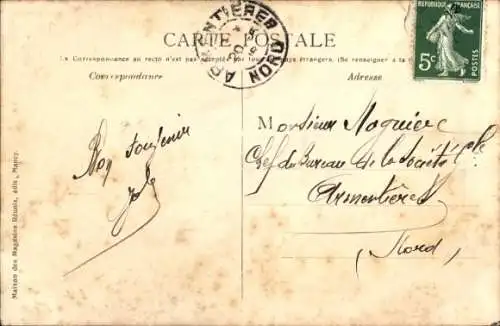 ARMENTIÈRES
NORD
REPUBLIQUE FRANÇAISE
5c
POSTES
CARTE POSTALE
La Correspondance au recto n'est pas acceptée par tous pays étrangers. (Se renseigner à la
Correspondance
Adresse
Bon Souvenir
Monsieur Noguier
Chef du Bureau de la Société Gle
Armentières
(Nord)
Maison des Magasins Réunis, édit., Nancy.